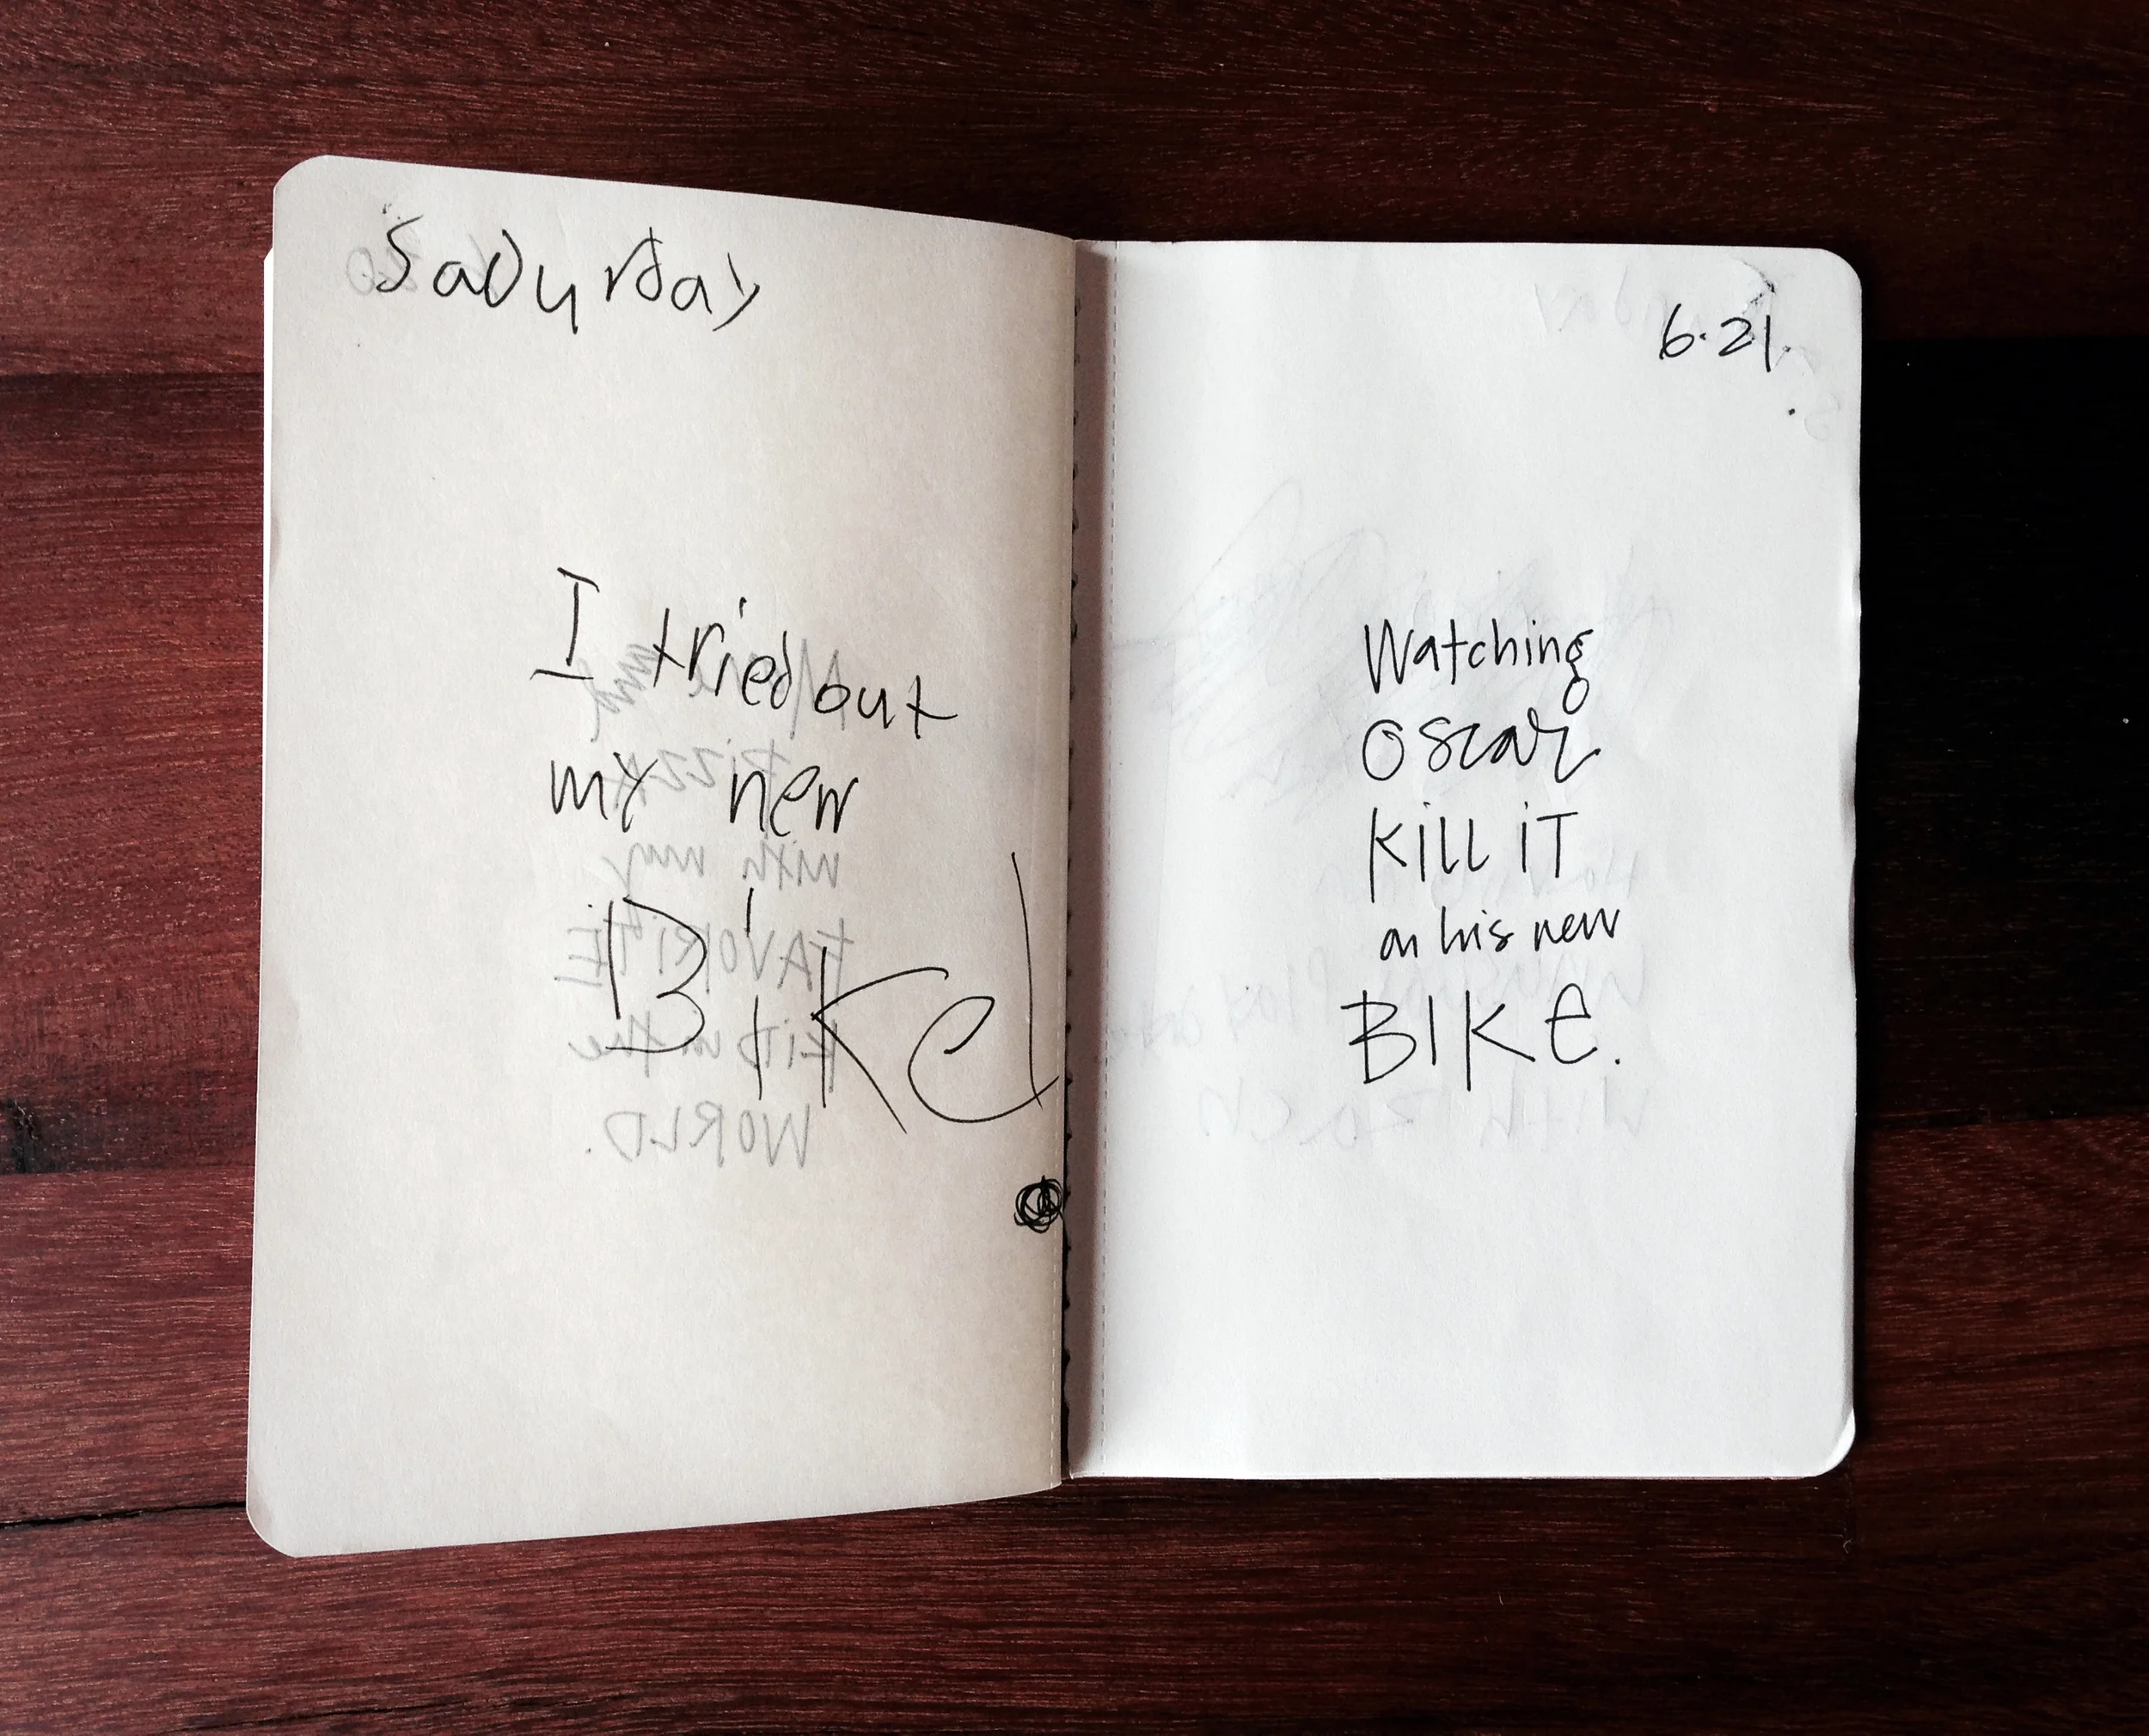 SaDurday
I tried out
my new
Bike!
6.21.
Watching
Oscar
Kill iT
on his new
BIKe.